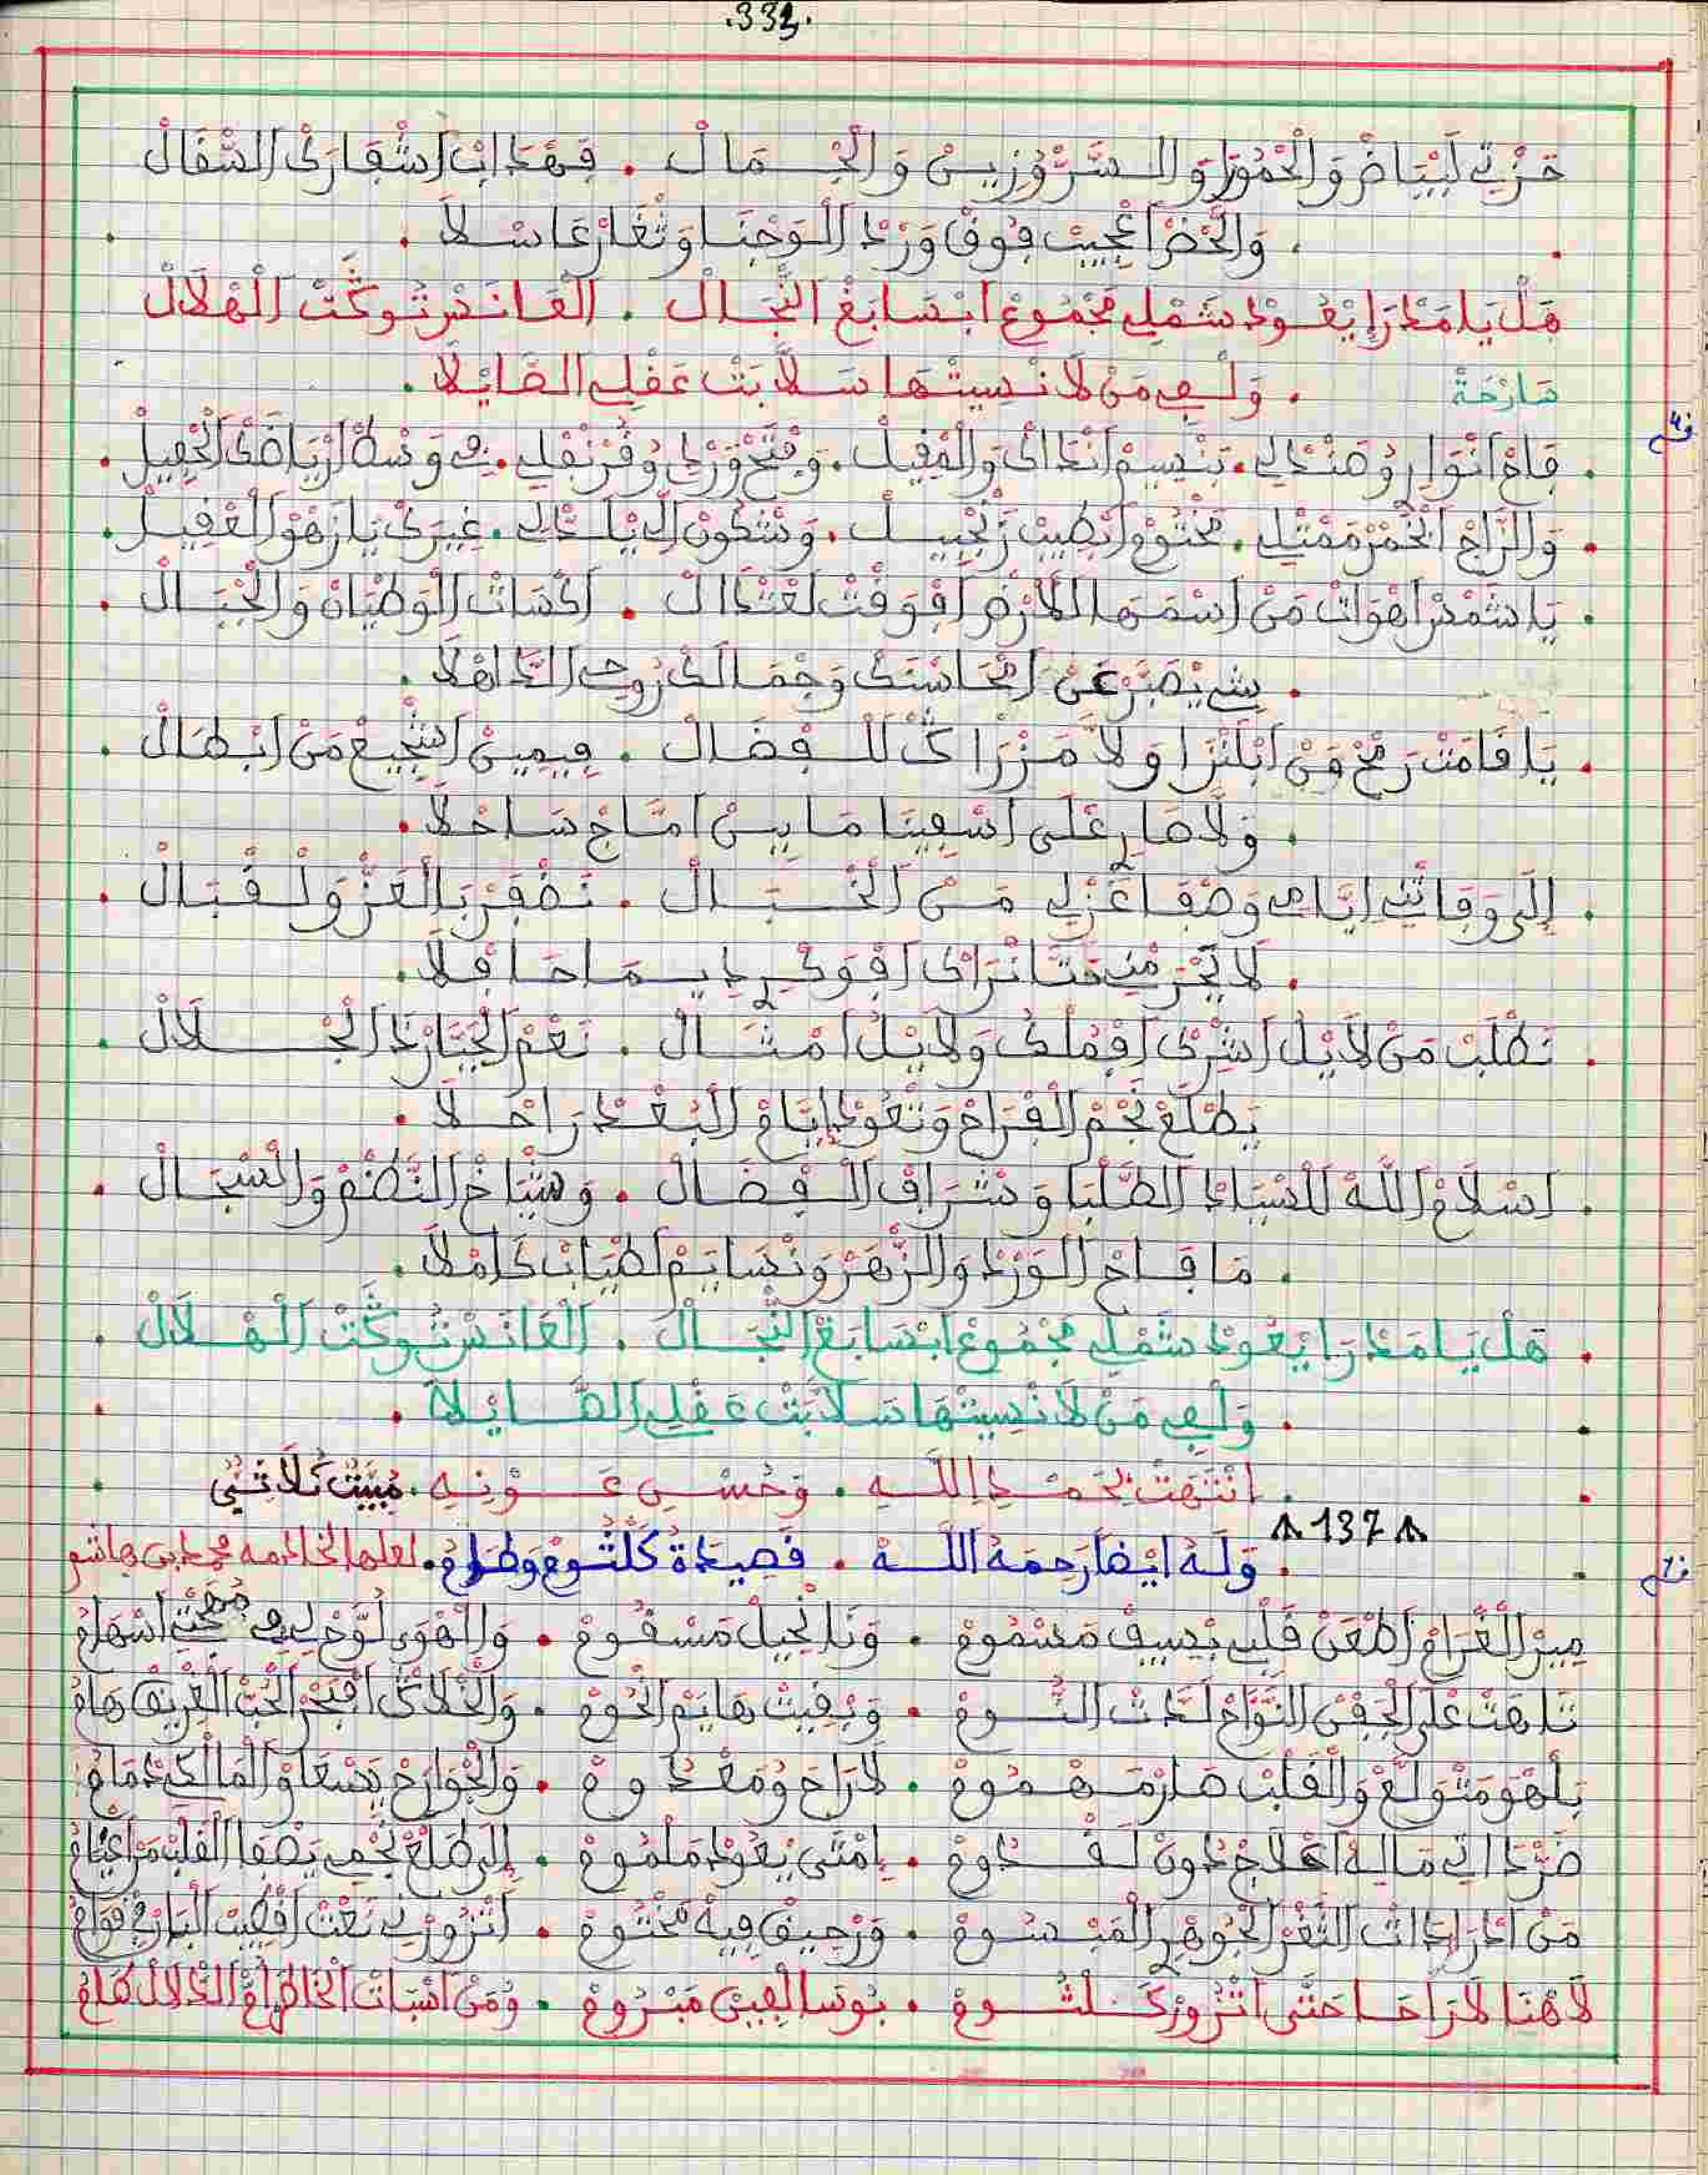 .333.
حَزْتِي لَبْيَاضْ وَالْحْمُورَا وَالسَّرْ وُزِينْ وَالْجْمَالْ . فَهْدَابْ اشْفَارَكْ السْفَالْ
. وَالْخَضْرَا عْجِيبْ فُوقْ وَرْدْ الْوَجْنَا وَثْغَارْ عَاسْلَا .
هَلْ يَا مَدْرَا يْعُودْ شَمْلِي مَجْمُوعْ ابْسَابَغْ النّْجَالْ . الْعَانَسْ تُوكَّتْ الْهْلَالْ
صَارْحَةْ . وَلْفِي مَنْ لَا نْسِيتْهَا سَلَّابَتْ عَقْلِي الصَّايْلَا .
. فَاحْ انْوَارِ وُصَنْدْلِي . بَنْسِيمْ انْدَاكْ وَالْمْقِيلْ . وَفْتَحْ وَرْدِي وُقْرَنْفْلِي . فِي وَسْطْ ارْيَاضَكْ الْحْفِيلْ .
. وَالرَّاحْ الْخْمَرْ مَمْتْلِي . مَخْتُومْ ابْطِيبْ زَنْجْبِيلْ . وَتْكُونْ الِّي يَا خْلِي . غِيرَكْ يَا زَهْوْ الْعْقِيلْ .
. يَا شَمْسْ اضْوَاتْ مَنْ اسْمَهَا الْلَارْضْ افْوَقْتْ لَعْتْدَالْ . اكْسَاتْ الْوَطْيَانْ وَالْجْبَالْ .
. شِي يَصْبَرْ عَنْ امْحَاسْنَكْ وَجْمَالَكْ رُوحِي الدَّاهْلَا .
. يَا قَامَتْ رَمْحْ مَنْ ابْلَنْزَا وَلَّا مَزْرَاكْ لَلْفْضَالْ . فِيمِينْ اشْجِيعْ مَنْ ابْطَالْ .
. وَلَّا صَارِي عْلَى اسْفِينَا مَا بِينْ امْتَاجْ سَاحْلَا .
. إِلَى وَفَاتْنِي ايَّامِي وَصْفَا غَزْلِي مَنْ الْخْبَالْ . نَضْفَرْ بَالْعَزْ وَلْقْبَالْ .
. لَا يَحْرَمْنِي حَتَّا نْرَاكْ افْوَكْرِي دِيمَا حَافْلَا .
. نَطْلَبْ مَنْ لَا يْلُ اشْرِكْ افْمُلْكُ وَلَا يْلُ امْثَالْ . نَعْمْ الْجْبَّارْ دَا الْجْلَالْ .
يَطْلَعْ نَجْمْ الْفْرَاحْ وَتْعُودْ ايَّامْ الْبُعْدْ رَاحْلَا .
. اسْلَامْ اللَّهْ لَلسْيَادْ الطُّلْبَا وَشْرَافْ الْفْضَالْ . وَشْيَاخْ النَّظْمْ وَالسْجَالْ .
. مَا فَاحْ الْوَرْدْ وَالزْهَرْ وَنْسَايَمْ لَطْيَابْ كَامْلَا .
. هَلْ يَا مَدْرَا يْعُودْ شَمْلِي مَجْمُوعْ ابْسَابَغْ النّْجَالْ . الْعَانَسْ تُوكَّتْ الْهْلَالْ .
. وَلْفِي مَنْ لَا نْسِيتْهَا سَلَّابَتْ عَقْلِي الصَّايْلَا .
. انْتَهَتْ بِحَمْدِ اللَّهِ . وَحُسْنِ عَوْنِهِ . مْبَيَّتْ ثُلَاثِي
137
. وَلَهُ ايْضًا رَحِمَهُ اللَّهُ . قَصِيدَةُ كَلْثُومْ وَطَامُ . لعلها لخادمه محمد بن هاشم
مِيرْ الْغْرَامْ اطْعَنْ قَلْبِي بْسِيفْ مَسْمُومْ . وَنَا نْحِيلْ مَسْقُومْ . وَالْهْوَى لَوَّحْ لِي اسْهَامُ
تَاهَتْ عْلَى الْجْفَنْ النْوَّاحْ لَدَّتْ النُّومْ . وَبْقِيتْ هَايَمْ انْحُومْ . وَالْخْلَاكْ افْبَحْرْ الْحُبْ الْغْرِيقْ هَامُ
بَلْهْوَى مَتْوَلَّعْ وَالْقَلْبْ صَارْ مَهْمُومْ . لَا رَاحَ وُمَعْدُومْ . وَالْجْوَارَحْ يَسْعَاوْ الْمَالْكِي دْمَامُ
ضَرْ دَاتِي مَا لِهْ اعْلَاجْ دُونْ لَقْدُومْ . يَامْتَى يْعُودْ مَلْمُومْ . إِلَى طْلَعْ نَجْمِي يَصْفَا الْقَلْبْ مَنْ اغْيَامُ
مَنْ ادْرَا دَاتْ الثْغَرْ الْجُوهْرِ الْمَبْسُومْ . وَرْحِيقْ فِيهْ مَخْتُومْ . اتْزُورْنِي نَعْتْ اقْضِيبْ الْبَانْ فِي قْوَامُ
لَا هْنَا لَا رَاحَا حَتَّى اتْزُورْ كَلْثُومْ . بُوسَالْفِينْ مَبْرُومْ . وُمَنْ اسْبَاتْ الْخَاطَرْ امْ الدْلَالْ طَامُ